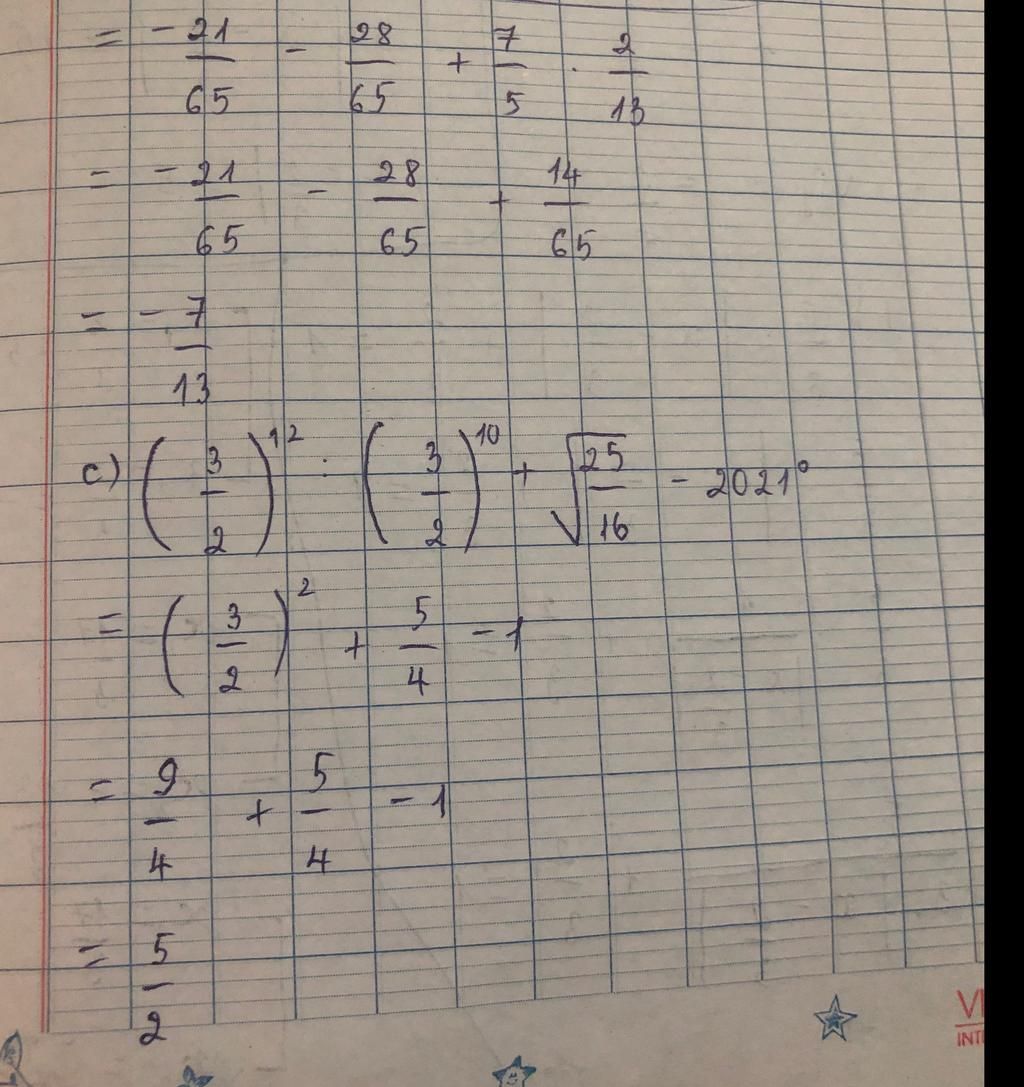 = - 21/65 - 28/65 + 7/5 . 2/13
= - 21/65 - 28/65 + 14/65
= - 7/13
c) (3/2)^12 : (3/2)^10 + √(25/16) - 2021^0
= (3/2)^2 + 5/4 - 1
= 9/4 + 5/4 - 1
= 5/2